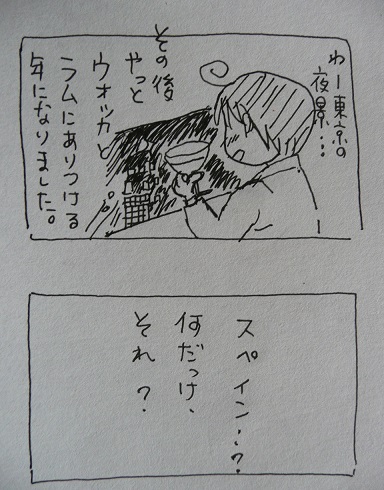 わー東京の
夜景…
その後
やっと
ウオッカと
ラムにありつける
年になりました。
スペイン…?
何だっけ、
それ?